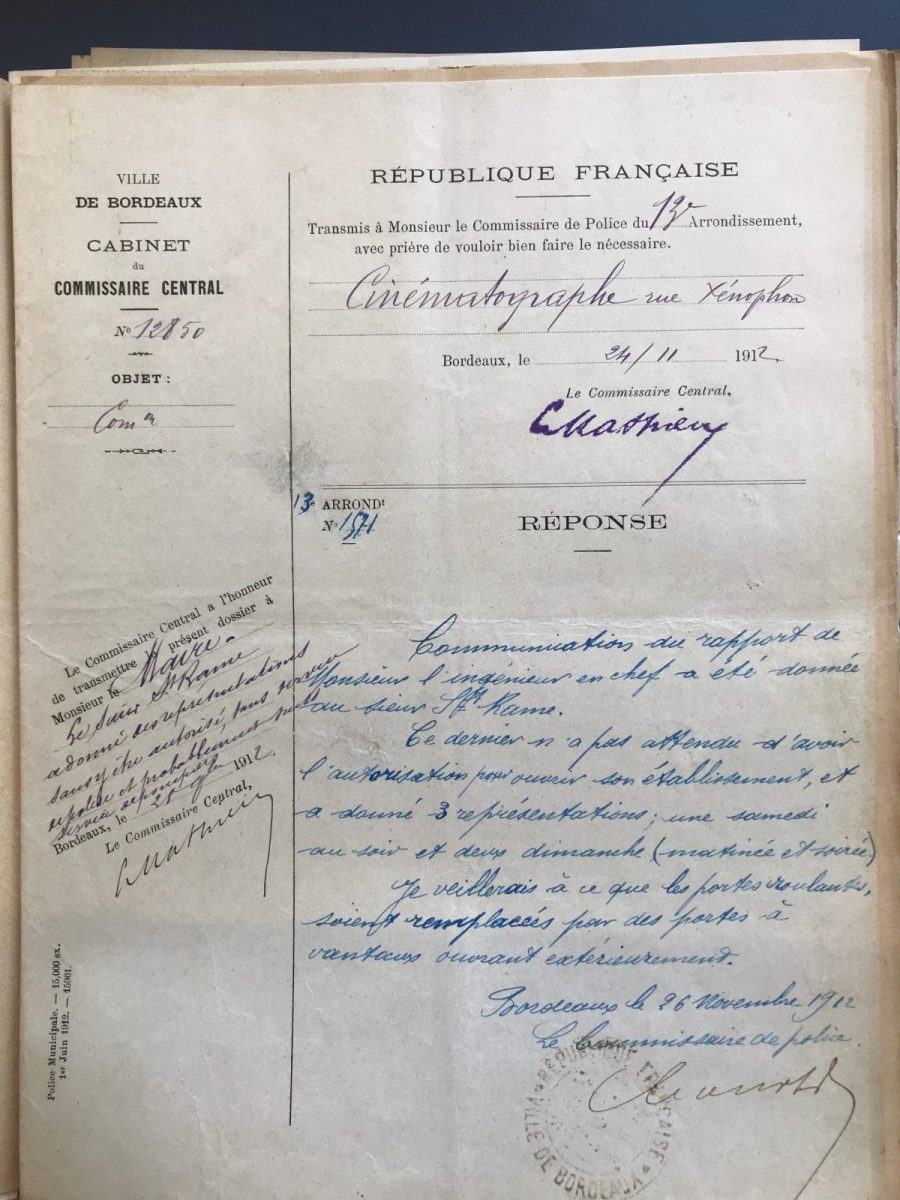 VILLE
DE BORDEAUX
CABINET
du
COMMISSAIRE CENTRAL
No 12850
OBJET :
Comon
RÉPUBLIQUE FRANÇAISE
Transmis à Monsieur le Commissaire de Police du 13e Arrondissement,
avec prière de vouloir bien faire le nécessaire.
Cinématographe rue Xénophon
Bordeaux, le 24/11 1912
Le Commissaire Central,
CMathieu
13e ARRONDt
No 1571
RÉPONSE
Le Commissaire Central a l'honneur
de transmettre le présent dossier à
Monsieur le Maire.
Le sieur St Rame
a donné des représentations
sans y être autorisé, sans service
de police et probablement sans
service de
Bordeaux, le 1912
Le Commissaire Central,
CMathieu
Communication du rapport de
Monsieur l'ingénieur en chef a été donnée
au sieur St Rame.
Ce dernier n'a pas attendu d'avoir
l'autorisation pour ouvrir son établissement, et
a donné 3 représentations; une samedi
au soir et deux dimanche (matinée et soirée)
Je veillerais à ce que les portes roulantes,
soient remplacées par des portes à
vantaux ouvrant extérieurement.
Bordeaux le 26 Novembre 1912
Le Commissaire de police
RÉPUBLIQUE FRANÇAISE
VILLE DE BORDEAUX
Police Municipale. — 15,000 ex.
1er Juin 1912. — 15961.